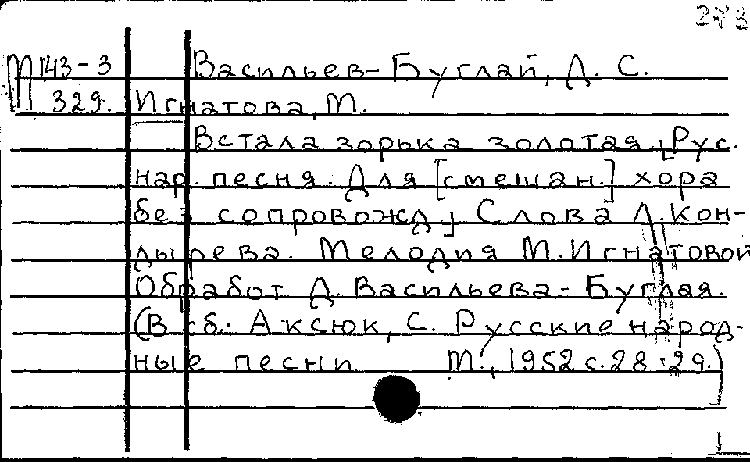 273
М143-3 Васильев-Буглай, Д. С.
329. Игнатова, М.
Встала зорька золотая. [Рус.
нар. песня. Для [смешан.] хора
без сопровожд.] Слова Л. Кон-
дырева. Мелодия М. Игнатовой
Обработ Д. Васильева-Буглая.
(В сб.: Аксюк, С. Русские народ-
ные песни М., 1952 с. 28-29.)